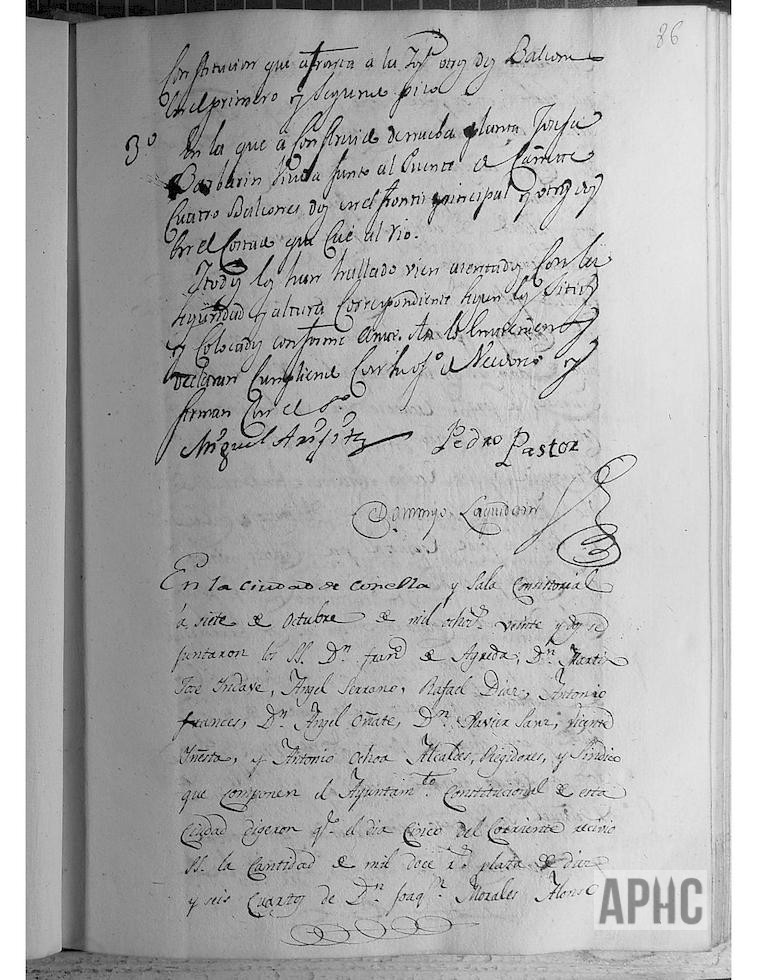 86
Constitucion que atrasea a la Ygª otros dos Balcones
en el primero y segundo piso
3º En la que a Construido de nueba planta Josefa
Barbarin Viuda Junto al Puente de
Cuatro Balcones dos en el frontis principal y otros dos
en el Costado que Cae al rio.
Y todos los han hallado vien asentados con la
seguridad y altura Correspondiente segun los sitios
y Colocados conforme
declaran Cumpliendo Con su ofº y
firman Con el Sºʳ
Miguel Pedro Pastor
Domingo Laquidain
En la ciudad de Corella y Sala Consistorial
á siete de Octubre de mil ochoˢ veinte y dos se
juntaron los SS. Dⁿ franᶜᵒ de Agreda, Dⁿ Martin
José Yndave, Angel Serrano, Rafael Diaz, Antonio
frances, Dⁿ Angel Oñate, Dⁿ Xavier Sanz, Vicente
Yñesta, y Antonio Ochoa Alcaldes, Regidores, y Sindico
que componen el Ayuntamᵗᵒ Constitucional de esta
Ciudad digeron qᵉ el dia Cinco del Corriente recivio
SS. la Cantidad de mil doce rˢ plata de diez
y seis Cuartos de Dⁿ Joaqⁿ Morales Alonso
APHC